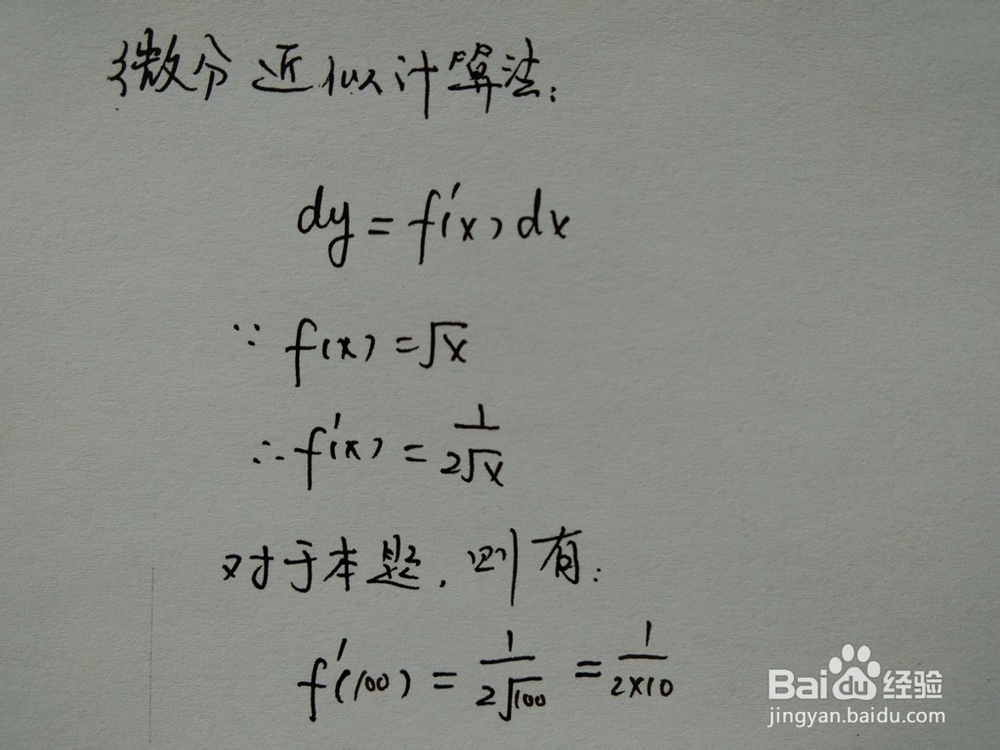 微分近似计算法：
dy = f'(x)dx
∵ f(x) = √x
∴ f'(x) = 1/(2√x)
对于本题，则有：
f'(100) = 1/(2√100) = 1/(2×10)
Baidu经验
jingyan.baidu.com